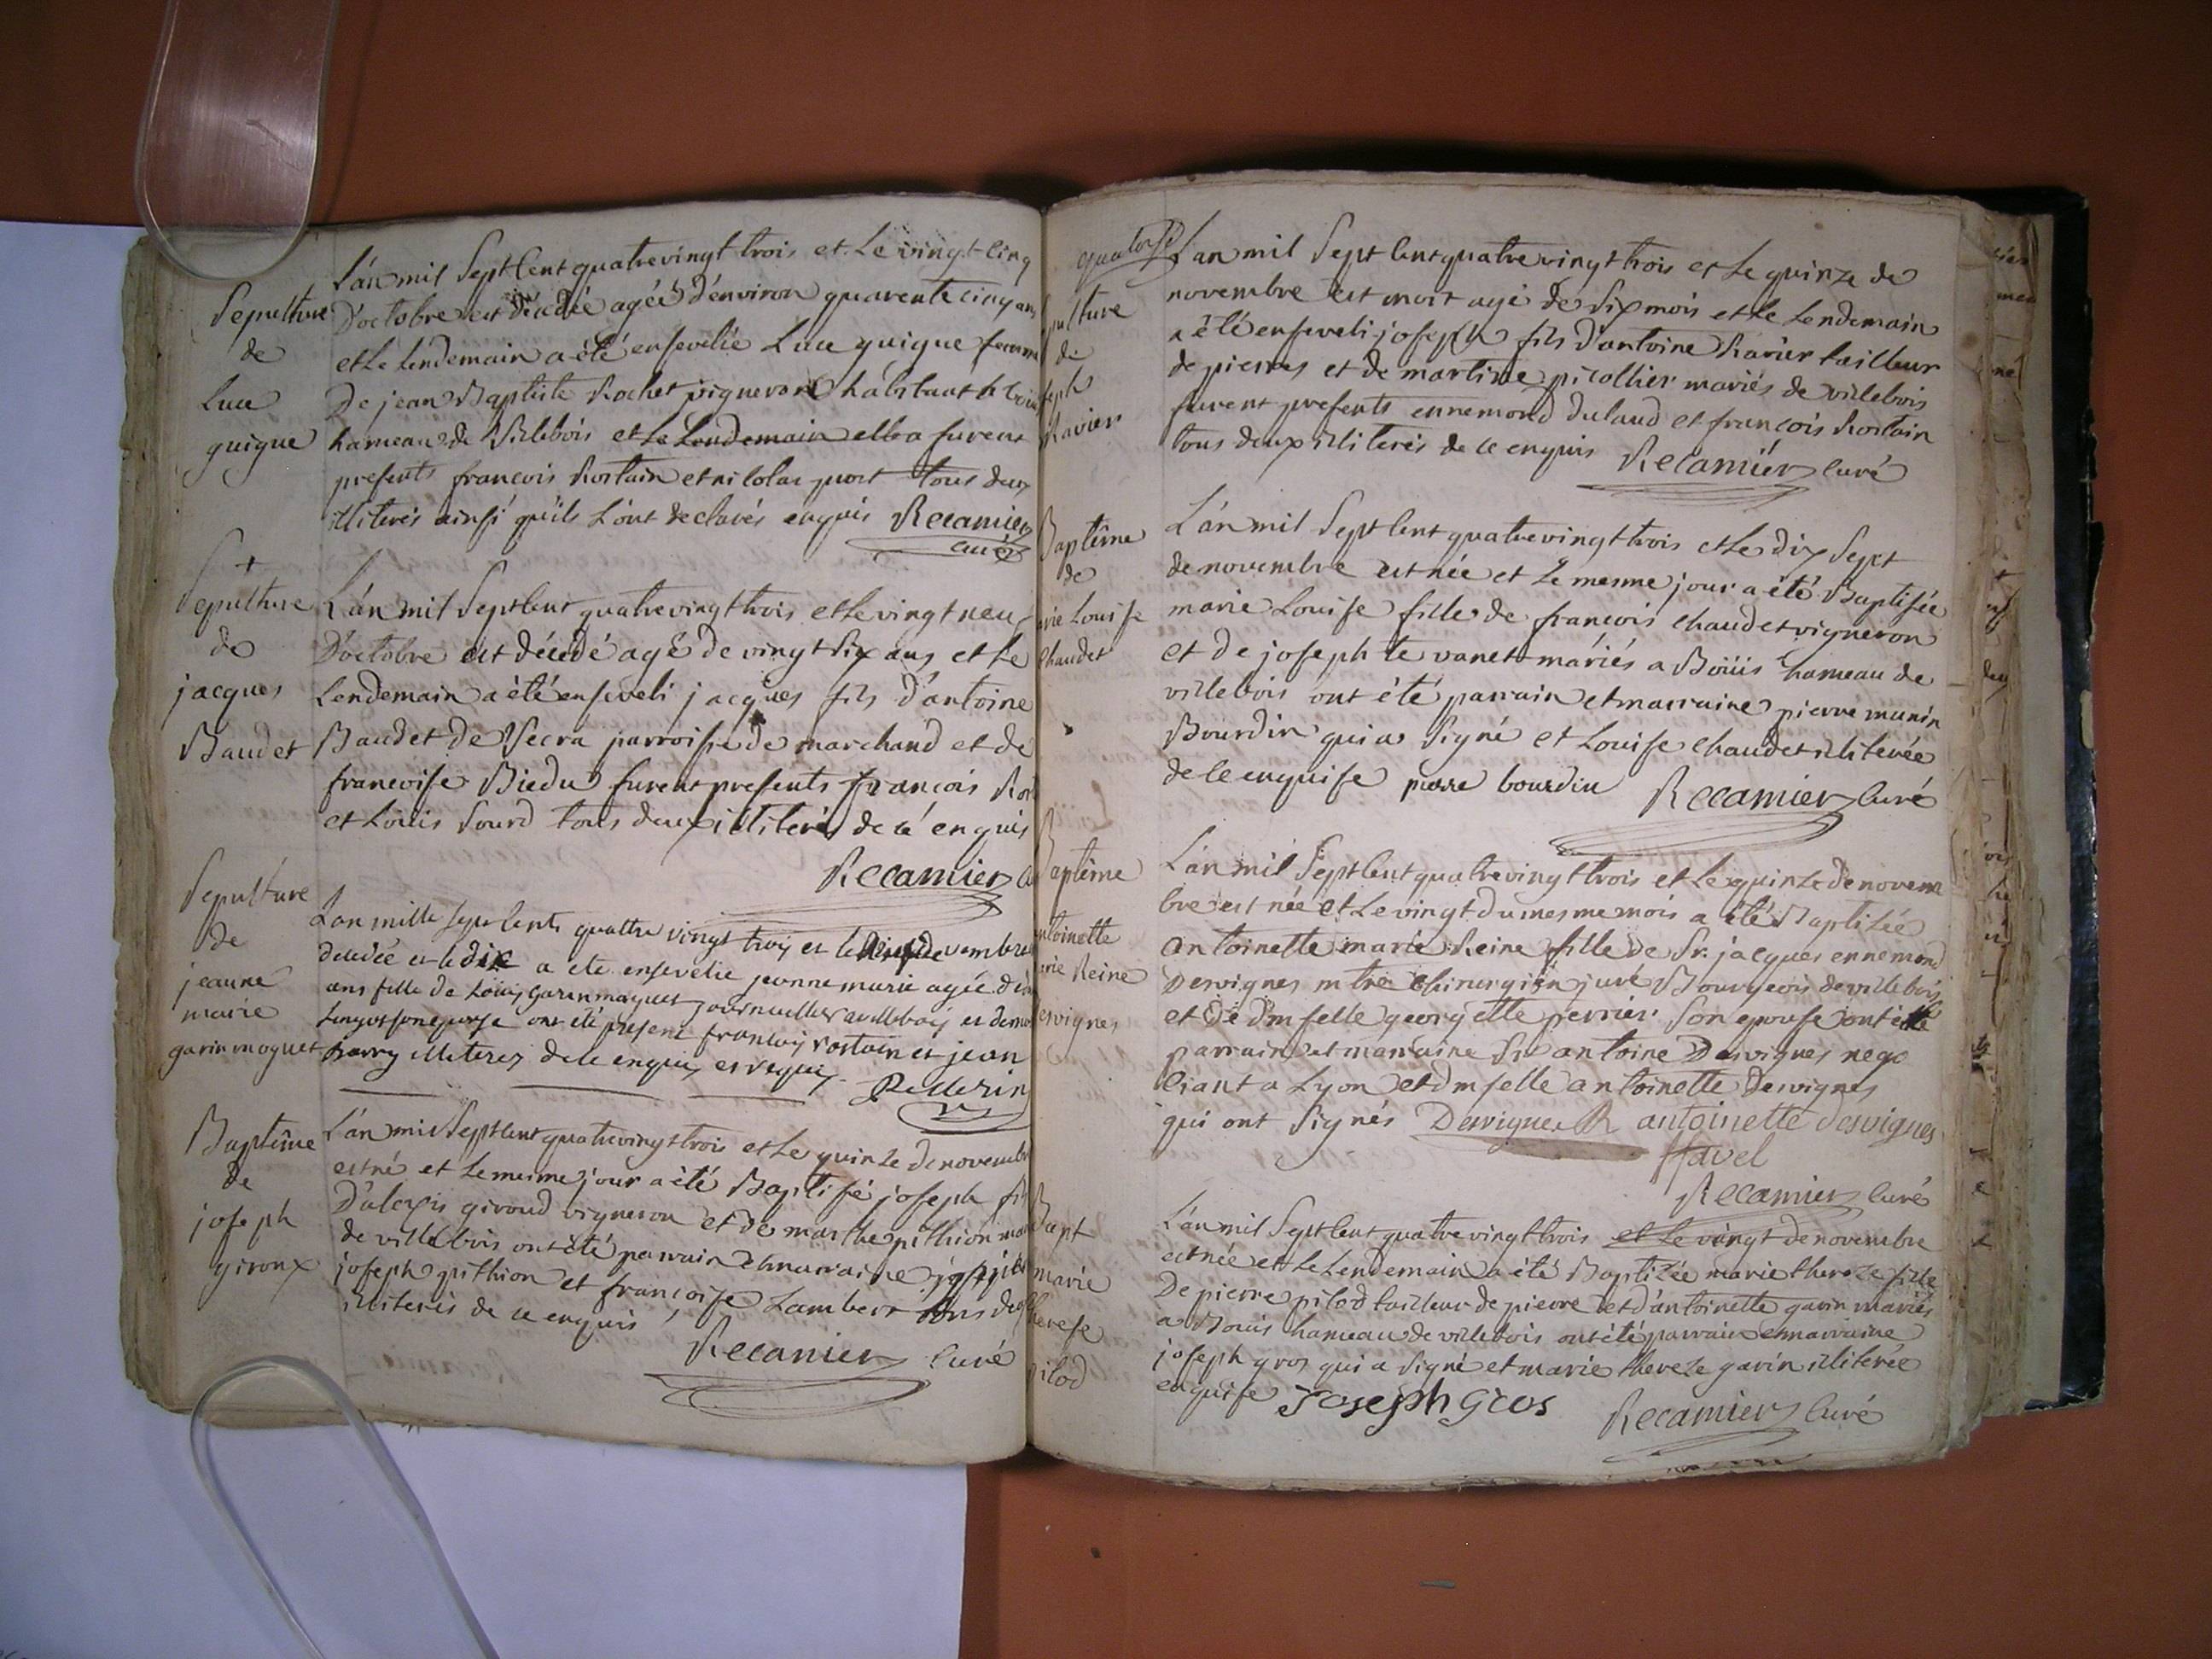 Sepulture
de
Luce
guigue
L'an mil Sept Cent quatre vingt trois et Le vingt cinq
D'octobre est décédée agée d'environ quarente cinq ans
et Le Lendemain a été ensevelie Luce guigue femme
De jean Baptiste Rochet vigneron habitant a
hameau de Villebois et Le Lendemain furent
presents francois Rostain et nicolas port tous deux
illiterés ainsi qu'ils L'ont declarés enquis Recamier
curé
+
Sepulture
de
jacques
Baudet
L'an mil Sept Cent quatre vingt trois et Le vingt neuf
D'octobre est décédé agé de vingt Six ans et Le
Lendemain a été enseveli jacques fils d'antoine
Baudet de Vecra parroisse de marchand et de
francoise Biedu furent presents françois
et Louis Sourd tous deux illiterés de ce enquis
Recamier
Sepulture
de
jeanne
marie
garin moquet
L'an mille sept cents quattre vingt trois et le
decedée et le dix a ete ensevelie jeanne marie agée
ans fille de Louis garin moquet journallier a villebois et
son epouse ont été present francois rostain et jean
illiterez de ce enquis et requis
Pellerin
Baptême
de
joseph
giroux
L'an mil Sept Cent quatre vingt trois et Le quinze de novembre
est né et Le meme jour a été Baptisé joseph fils
D'alexis giroud vigneron et de marthe pithion
de villebois ont été parrain et marraine
joseph pithion et françoise Lambert tous deux
illiterés de ce enquis
Recamier Curé
quatorze
Sepulture
de
joseph
Ravier
L'an mil Sept Cent quatre vingt trois et Le quinze de
novembre est mort agé de Six mois et Le Lendemain
a été enseveli joseph fils d'antoine Ravier tailleur
de pierres et de martine picollier mariés de villebois
furent presents ennemond dulaud et françois Rostain
tous deux illiterés de ce enquis Recamier Curé
Baptême
de
marie Louise
Chaudet
L'an mil Sept Cent quatre vingt trois et Le dix Sept
de novembre est née et Le mesme jour a été Baptisée
marie Louise fille de françois Chaudet vigneron
et de joseph te vanet mariés a Boüis hameau de
villebois ont été parrain et marraine pierre munin
Bourdin qui a Signé et Louise Chaudet illiterée
de Ce enquise pierre bourdin Recamier Curé
Baptême
antoinette
marie Reine
Desvignes
L'an mil Sept Cent quatre vingt trois et Le quinze de novem
bre est née et Le vingt du mesme mois a été Baptizée
antoinette marie Reine fille de Sr. jacques ennemond
Desvignes mtre Chirurgien juré Bourgeois de villebois
et De dmselle georgette perrier Son epouse ont été
parrain et marraine Sr antoine Desvignes nego
Ciant a Lyon et dmselle antoinette Desvignes
qui ont Signés Desvignes antoinette desvignes
favel
Recamier Curé
Bapt
marie
therese
pilod
L'an mil Sept Cent quatre vingt trois et Le vingt de novembre
est née et Le Lendemain a été Baptizée marie thereze fille
De pierre pilod tailleur de pierre et d'antoinette garin mariés
a Bouis hameau de villebois ont été parrain et marraine
joseph gros qui a Signé et marie thereze garin illiterée
enquise Joseph Gros
Recamier Curé